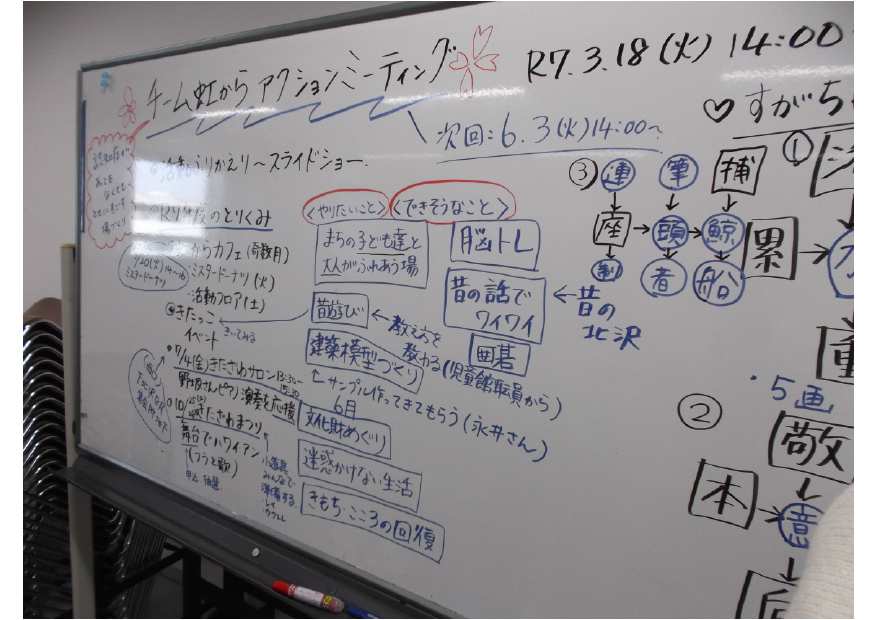 チーム虹から アクションミーティング
R7.3.18(火) 14:00
次回:6.3(火)14:00~
活動ふりかえり~スライドショー
のとりくみ
からカフェ(奇数月)
ミスタードーナツ(火)
・活動フロア(土)
きたっこ
イベント
7/4(金)きたざわサロン 13:30~
野坂さんピアノ演奏を応援
きたざわまつり
舞台でハワイアン
(フラと歌)
小道具
みんなで
準備する
・レイ
<やりたいこと>
まちの子ども達と
大人がふれあう場
昔遊び
←教え方を
教わる(児童館職員から)
建築模型づくり
サンプル作ってきてもらう(永井さん)
6月
文化財めぐり
迷惑かけない生活
きもち・こころの回復
<できそうなこと>
脳トレ
昔の話で
ワイワイ
←昔の
北沢
囲碁
♡すがち
①
累→
③
連 筆 捕
↓ ↓ ↓
座→頭→鯨
↓ ↓ ↓
者 船
②
・5画
敬
↓
本→意
↓